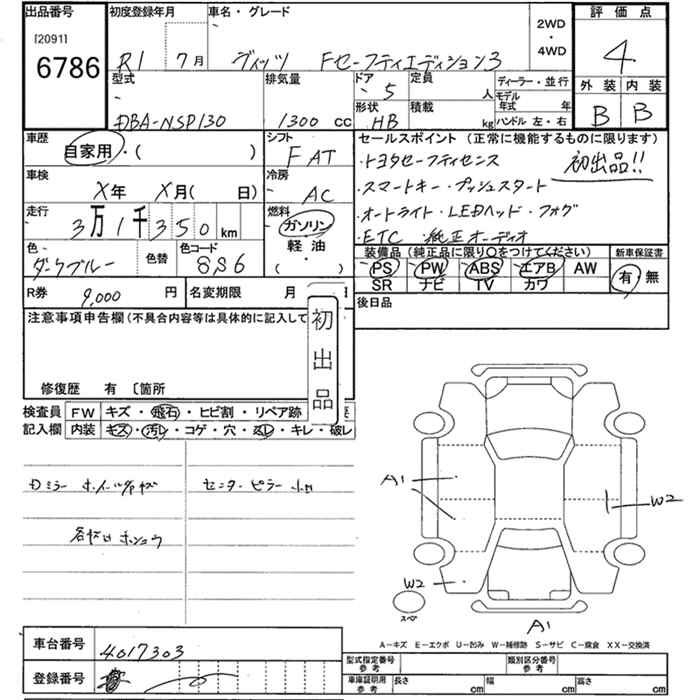 出品番号 初度登録年月 車名・グレード 2WD・4WD 評価点
[2091]
6786
R1 7月 ヴィッツ Fセーフティエディション3 4
型式 排気量 ドア 定員 ディーラー・並行 外装 内装
5 人 モデル年式 年
DBA-NSP130 1300 cc 形状 積載 B B
HB kg ハンドル 左・右
車歴 シフト セールスポイント (正常に機能するものに限ります)
自家用・( ) FAT ・トヨタセーフティセンス 初出品!!
車検 冷房 ・スマートキー・プッシュスタート
X年 X月( 日) AC
走行 燃料 ・オートライト・LEDヘッド・フォグ
3万1千350km ガソリン ・ETC ・純正オーディオ
色 色替 色コード 軽油 装備品 (純正品に限り○をつけてください) 新車保証書
ダークブルー 8S6 ( ) PS PW ABS エアB AW 有・無
SR ナビ TV カワ
R券 9,000 円 名変期限 月 日 後日品
注意事項申告欄(不具合内容等は具体的に記入して
初出品
修復歴 有 〔箇所
検査員 FW キズ・飛石・ヒビ割・リペア跡
記入欄 内装 キズ・汚レ・コゲ・穴・ムレ・キレ・破レ
Dミラー センターピラー
A1
W2
W2
スペア
A1
A−キズ E−エクボ U−凹み W−補修跡 S−サビ C−腐食 XX−交換済
車台番号 4017303
登録番号
型式指定番号 参考 類別区分番号 参考
車庫証明用 参考 長さ cm 幅 cm 高さ cm